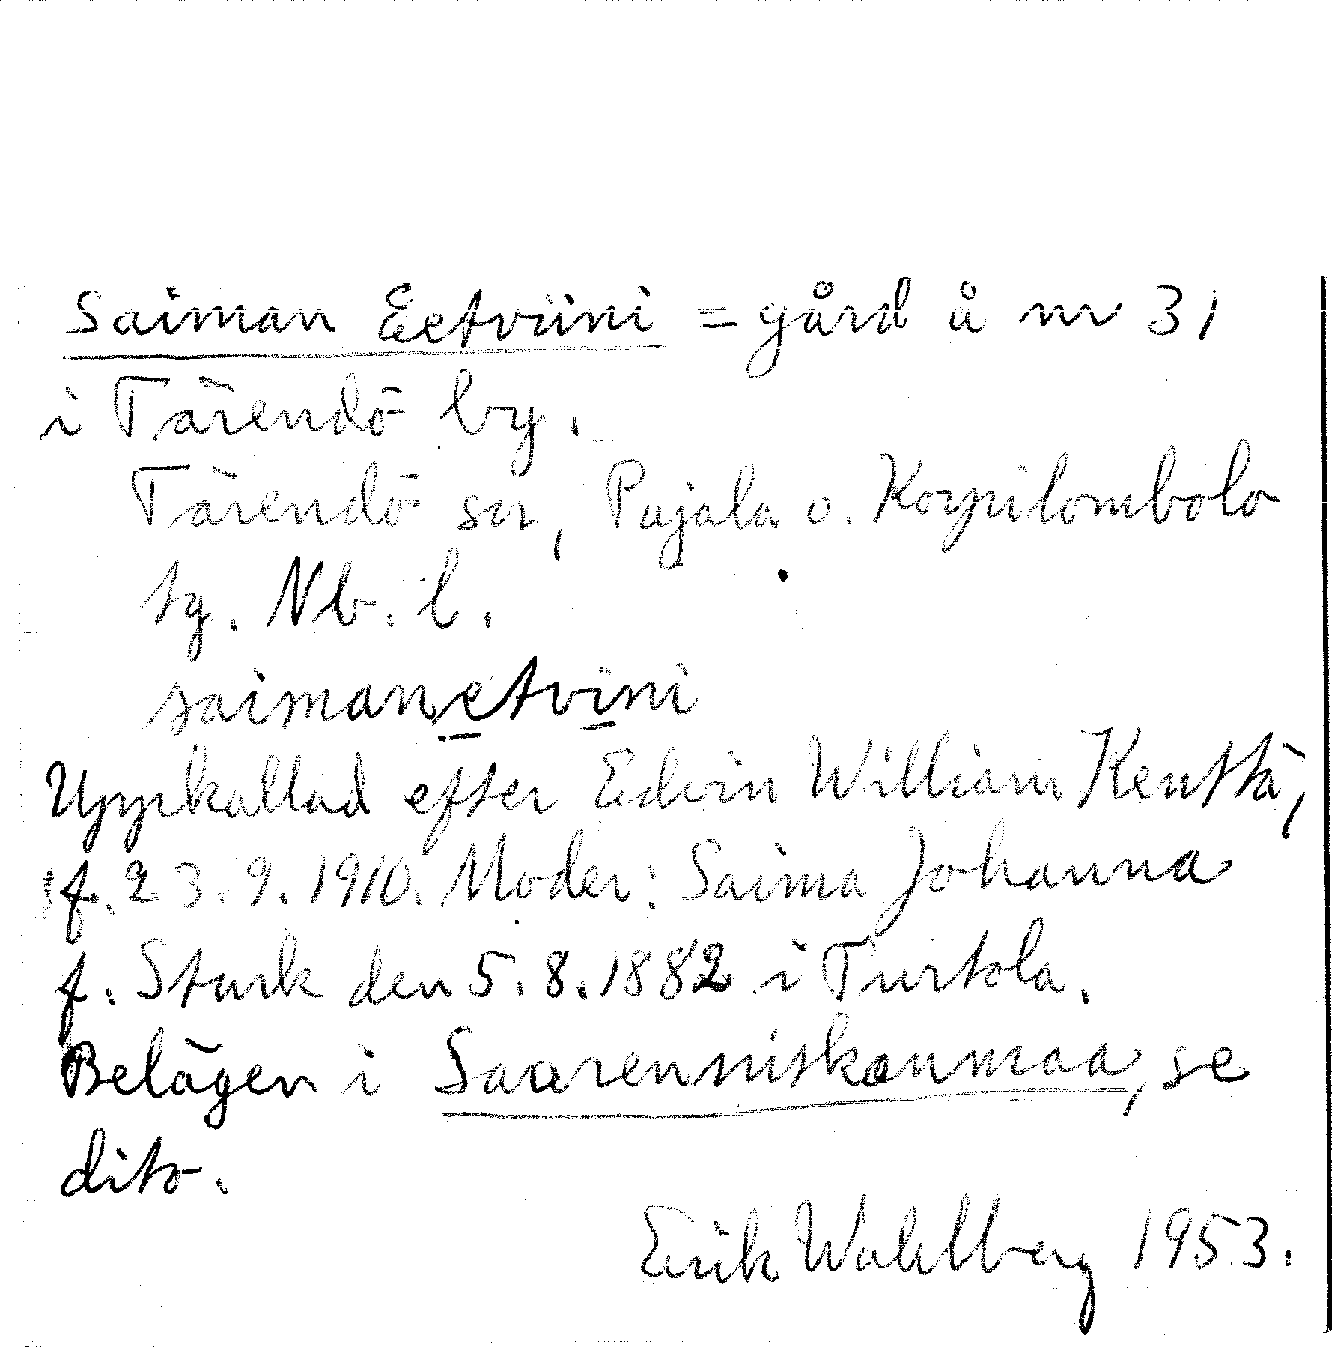 Saiman Eetviini = gård å nr 31
i Tärendö by.
Tärendö sn, Pajala o. Korpilombolo
tg. Nb. l.
saimanetvini
Uppkallad efter Edvin William Kenttä,
f. 23.9.1910. Moder: Saima Johanna
f. Stark den 5.8.1882 i Turtola.
Belägen i Saarenniskanmaa, se
dito.
Erik Wahlberg 1953.